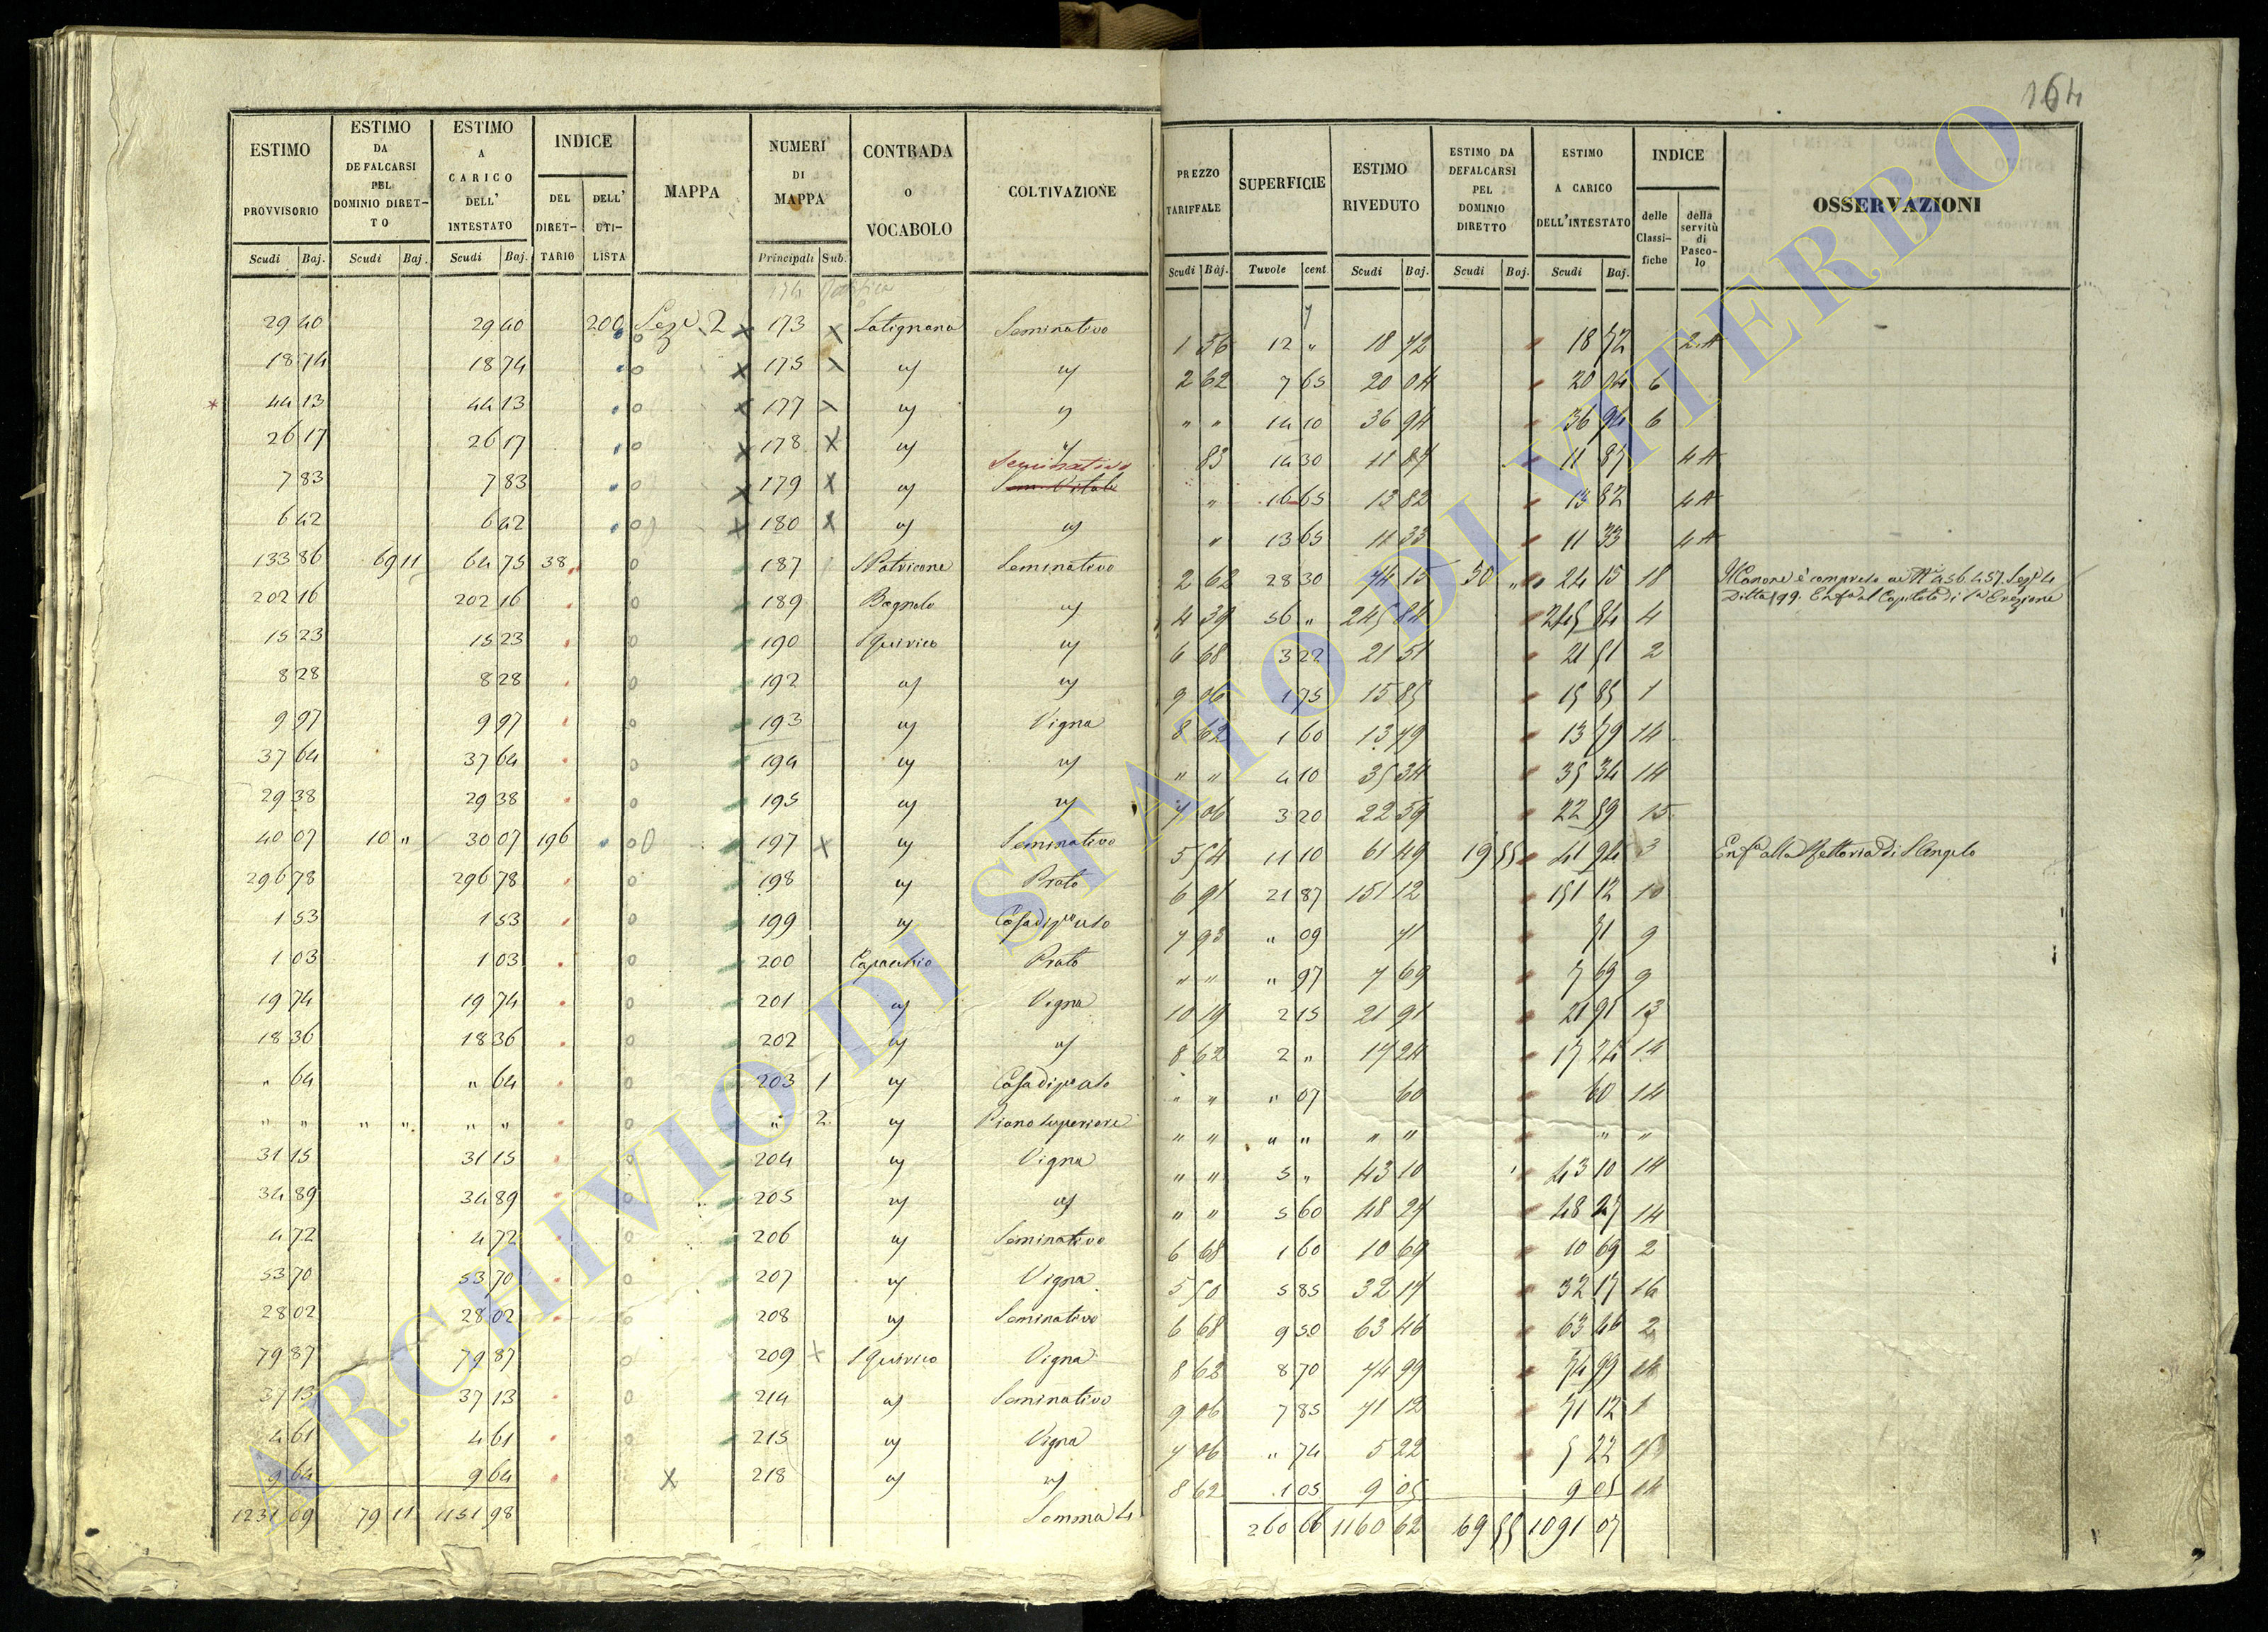 164
ESTIMO PROVVISORIO | ESTIMO DA DEFALCARSI PEL DOMINIO DIRET-TO | ESTIMO A CARICO DELL' INTESTATO | INDICE DEL DIRET-TARIO | DELL' UTI-LISTA | MAPPA | NUMERI DI MAPPA | CONTRADA O VOCABOLO | COLTIVAZIONE | PREZZO TARIFFALE | SUPERFICIE | ESTIMO RIVEDUTO | ESTIMO DA DEFALCARSI PEL DOMINIO DIRETTO | ESTIMO A CARICO DELL'INTESTATO | INDICE delle Classi-fiche | della servitù di Pasco-lo | OSSERVAZIONI
Scudi Baj. | Scudi Baj. | Scudi Baj. | Principali Sub. | Scudi Baj. | Tavole cent. | Scudi Baj. | Scudi Baj. | Scudi Baj.
29 40 | 29 40 | 200 | Seze 2 | 173 | Satignano | Seminativo | 1 56 | 12 " | 18 72 | 18 72 | 2 A
18 74 | 18 74 | 175 | " | " | 2 62 | 7 65 | 20 04 | 20 04 | 6
44 13 | 44 13 | 177 | " | " | " " | 14 10 | 36 94 | 36 94 | 6
26 17 | 26 17 | 178 | " | " | 83 | 14 30 | 11 87 | 11 87 | 4 A
7 83 | 7 83 | 179 | " | Seminativo | " | 16 65 | 13 82 | 13 82 | 4 A
6 42 | 6 42 | 180 | " | " | " | 13 65 | 11 33 | 11 33 | 4 A
133 86 | 69 11 | 64 75 | 38 | 187 | Seminativo | 2 62 | 28 30 | 74 15 | 50 " | 24 15 | 18 | Il Canone è compreso
202 16 | 202 16 | 189 | Bagnolo | " | 4 39 | 56 " | 245 84 | 245 84 | 4
15 23 | 15 23 | 190 | S Quirico | " | 6 68 | 3 22 | 21 51 | 21 51 | 2
8 28 | 8 28 | 192 | " | " | 9 06 | 1 75 | 15 85 | 15 85 | 1
9 97 | 9 97 | 193 | " | Vigna | 8 62 | 1 60 | 13 79 | 13 79 | 14
37 64 | 37 64 | 194 | " | " | " " | 4 10 | 35 34 | 35 34 | 14
29 38 | 29 38 | 195 | " | " | 7 06 | 3 20 | 22 59 | 22 59 | 15
40 07 | 10 " | 30 07 | 196 | 197 | " | Seminativo | 5 54 | 11 10 | 61 49 | 19 55 | 41 94 | 3 | Enfa alla Rettoria di S Angelo
296 78 | 296 78 | 198 | " | Prato | 6 91 | 21 87 | 151 12 | 151 12 | 10
1 53 | 1 53 | 199 | " | Casa di po uso | 7 93 | " 09 | 71 | 71 | 9
1 03 | 1 03 | 200 | Capacchio | Prato | " " | " 97 | 7 69 | 7 69 | 9
19 74 | 19 74 | 201 | " | Vigna | 10 19 | 2 15 | 21 91 | 21 91 | 13
18 36 | 18 36 | 202 | " | " | 8 62 | 2 " | 17 24 | 17 24 | 14
" 64 | " 64 | 203 | 1 | " | Casa di po uso | " " | " 07 | 60 | 60 | 14
" " | " " | " " | " | 2 | " | Piano superiore | " " | " " | " " | " | "
31 15 | 31 15 | 204 | " | Vigna | " " | 5 " | 43 10 | 43 10 | 14
34 89 | 34 89 | 205 | " | " | " " | 5 60 | 48 27 | 48 27 | 14
4 72 | 4 72 | 206 | " | Seminativo | 6 68 | 1 60 | 10 69 | 10 69 | 2
53 70 | 53 70 | 207 | " | Vigna | 5 50 | 5 85 | 32 17 | 32 17 | 16
28 02 | 28 02 | 208 | " | Seminativo | 6 68 | 9 50 | 63 46 | 63 46 | 2
79 87 | 79 87 | 209 | S Quirico | Vigna | 8 62 | 8 70 | 74 99 | 74 99 | 14
37 13 | 37 13 | 214 | " | Seminativo | 9 06 | 7 85 | 71 12 | 71 12 | 1
4 61 | 4 61 | 215 | " | Vigna | 7 06 | " 74 | 5 22 | 5 22 | 15
9 64 | 9 64 | 218 | " | " | 8 62 | 1 05 | 9 05 | 9 05 | 14
1231 09 | 79 11 | 1151 98 | Somma | 260 66 | 1160 62 | 69 55 | 1091 07
ARCHIVIO DI STATO DI VITERBO